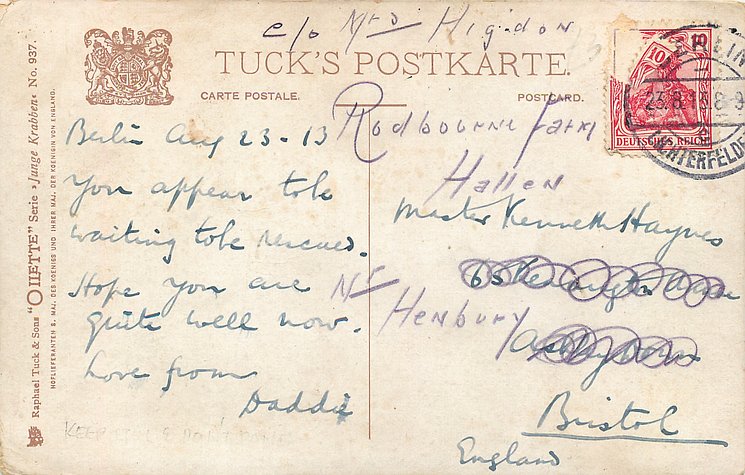 c/o Mrs Higdon
TUCK'S POSTKARTE.
CARTE POSTALE.
POSTCARD.
Raphael Tuck & Sons "OILETTE" Serie »Junge Krabben« No. 937.
HOFLIEFERANTEN S. MAJ. DES KOENIGS UND IHRER MAJ. DER KOENIGIN VON ENGLAND.
10
DEUTSCHES REICH
23.8.13.8-9
LICHTERFELDE
Berlin Aug 23-13
You appear to be
waiting to be rescued.
Hope you are
quite well now.
Love from
Daddie
Rodbourne Farm
Hallen
Master Kenneth Haynes
65 Kensington
Nr
Henbury
Ashley Down
Bristol
England